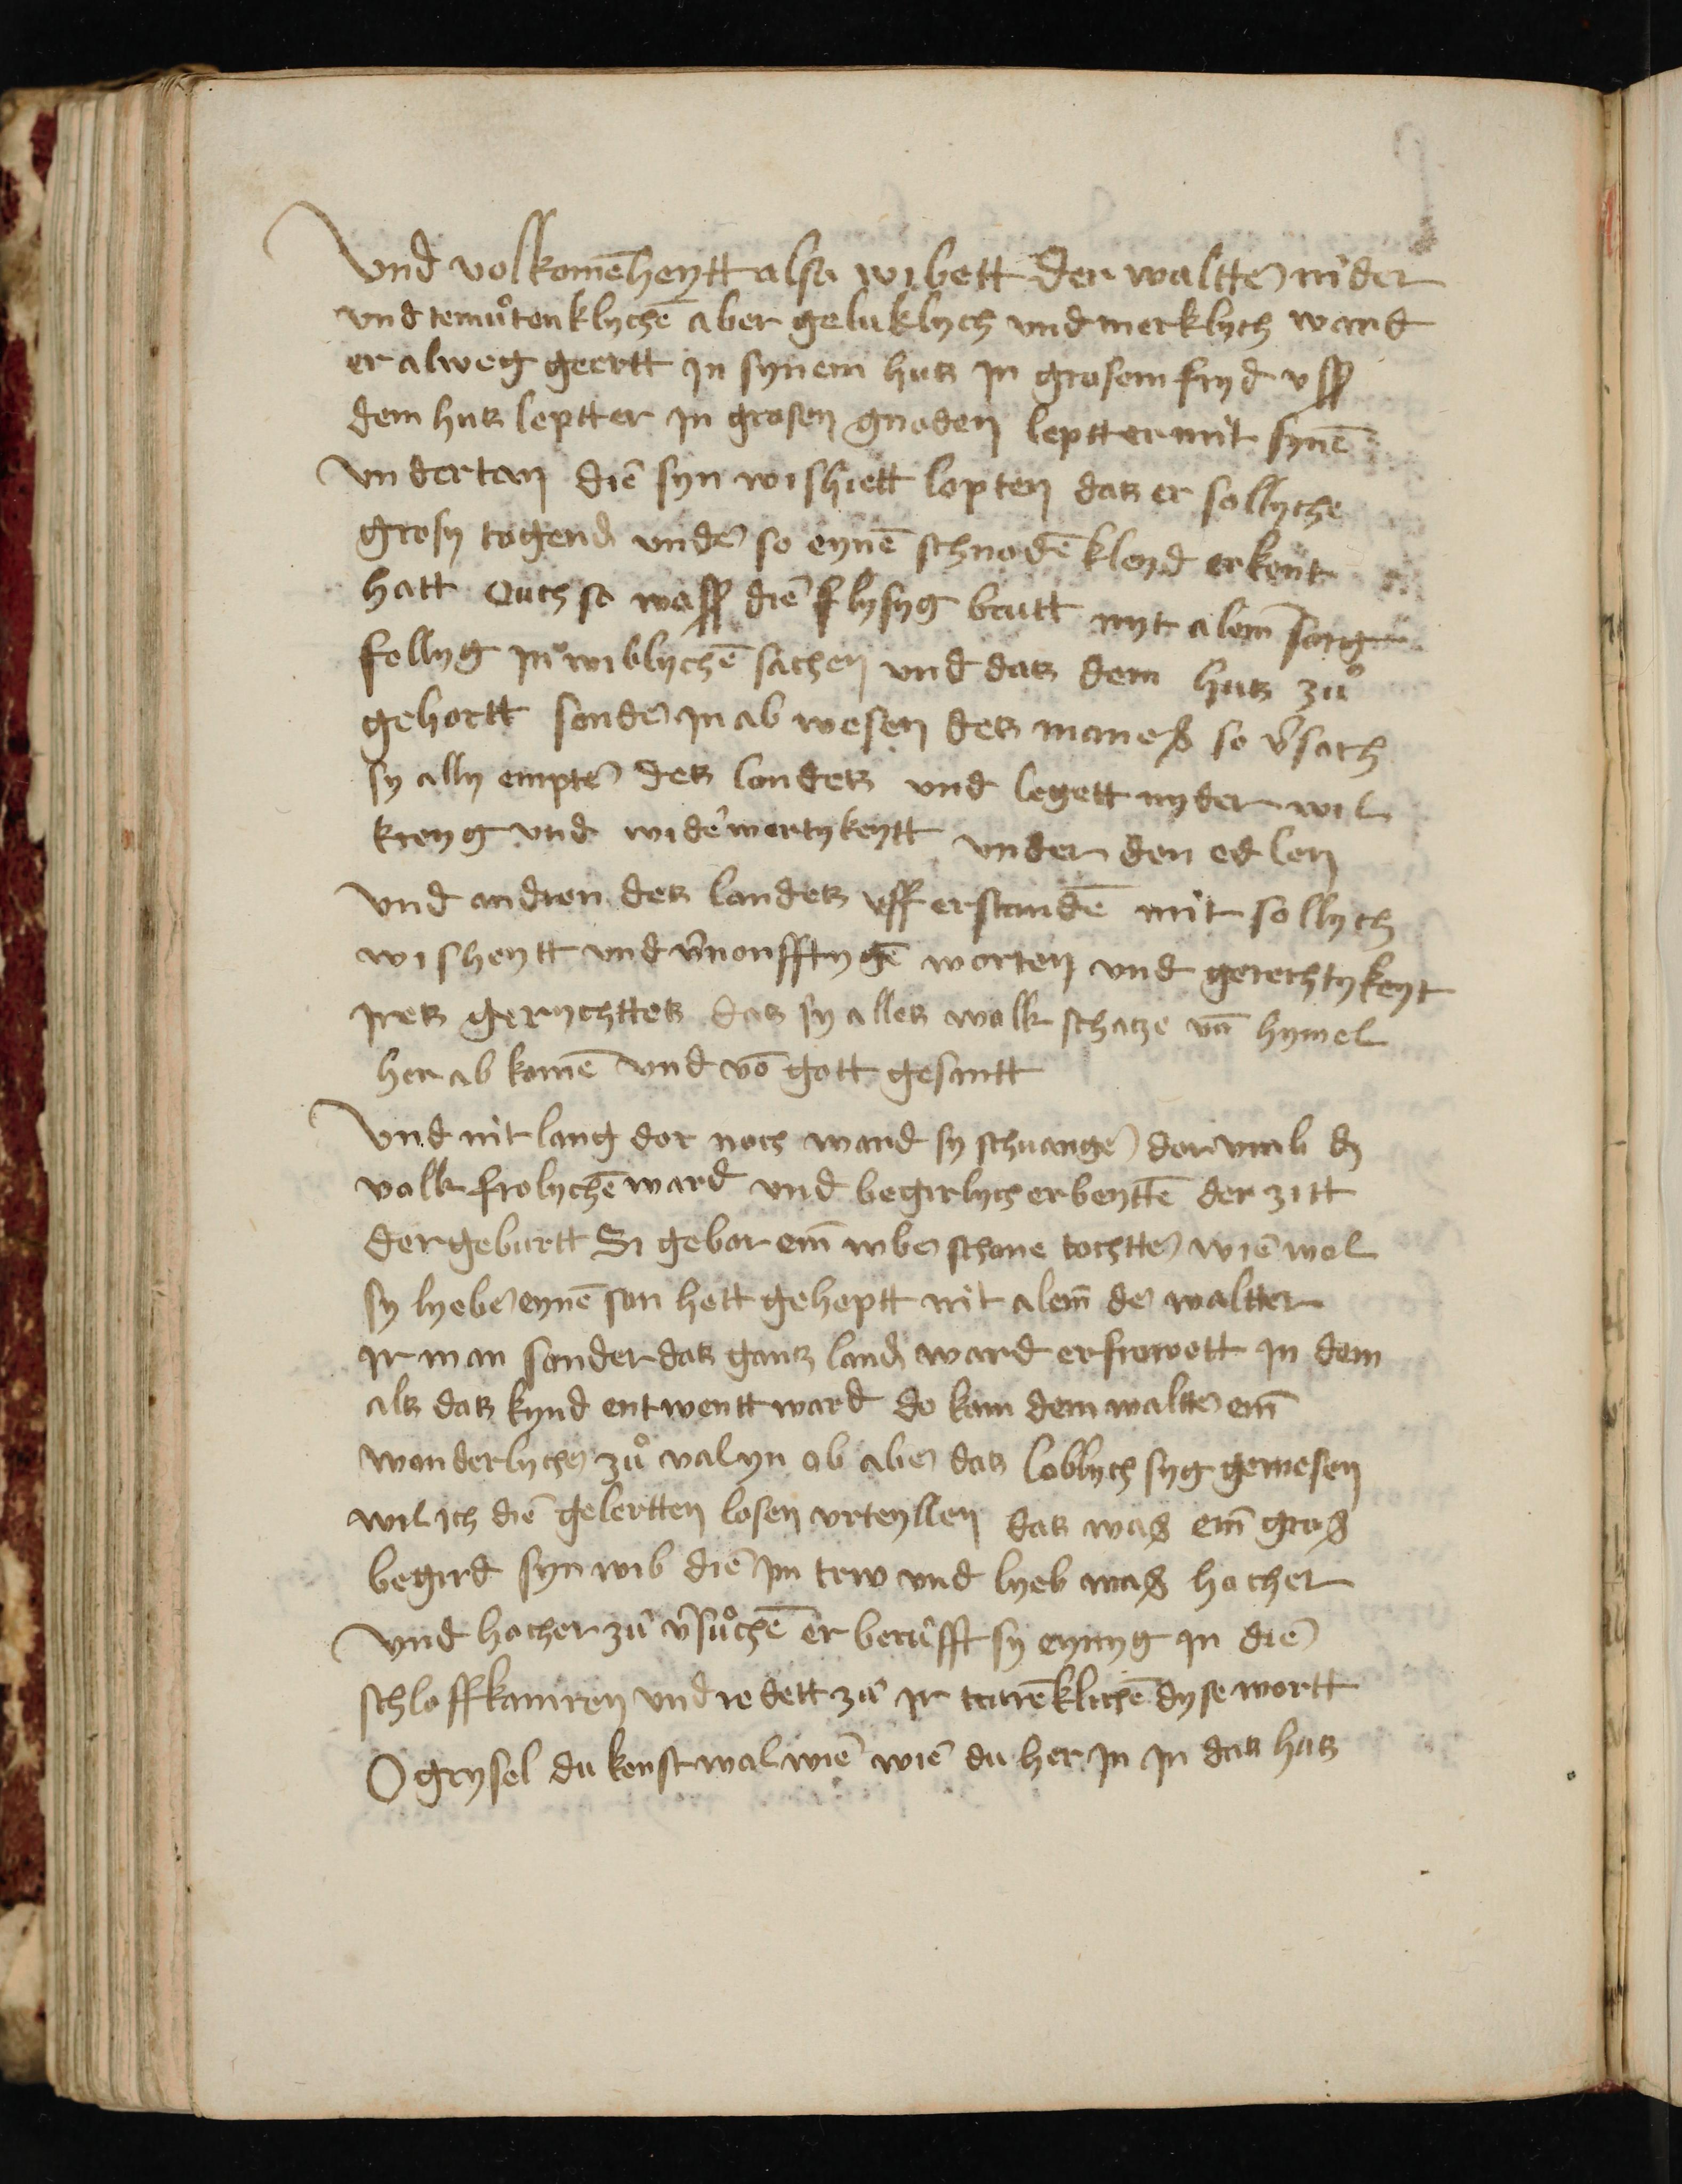 Vnd volkomēheytt also wibett der waltter nider
vnd temuͦtenklychē aber geluklych vnd merklych ward
er alweg geertt jn synem hus jn grosem fryd vsß
dem hus leptt er jn grosen gnoden leptt er mit synē
vndertan die syn wishiett lopten das er sollyche
grosy togend vnder so eynē schnodē kleyd erkent
hatt Ouch so wasß die flysyg brutt nyt alein sorg
fellyg jn wiblychē sachen vnd das dem hus zuͦ
gehortt sonder jn ab wesen des manes so v̄sach
sy ally empter des landes vnd legett nyder wil
krieyg vnd widerwertykeytt vnder den edlen
vnd andren des landes vff erstandē mit sollych
wisheytt vnd v̄nonfftygē worten vnd gerechtykeyt
jres gerychttes das sy alles wolk schatze vā hymel
her ab komē vnd vō gott gesantt
Vnd nit lang dor noch ward sy schwanger dorvmb dz
volk frolychē ward vnd begirlych erbeyttē der zitt
der geburtt Si gebar ein wber schone tochtter wie wol
sy lyeber eynē son hett geheptt nit alein der waltter
jr man sonder das gantz land ward erfrowett jn dem
als das kynd entwentt ward do kam dem waltter ein
wonderlycher zuͦ valyn ob aber das loblych syg gewesen
wil ich die gelertten losen vrteyllen das was ein gros
begird syn wib die jm trw vnd lyeb was hocher
vnd hocher zuͦ v̄suͦchē er beruͦfft sy eynyg jn die
schloffkamren vnd redett zuͦ jr trurēklichē dyse wortt
O grysel du kenst wal wie wie du her jn jn das hus